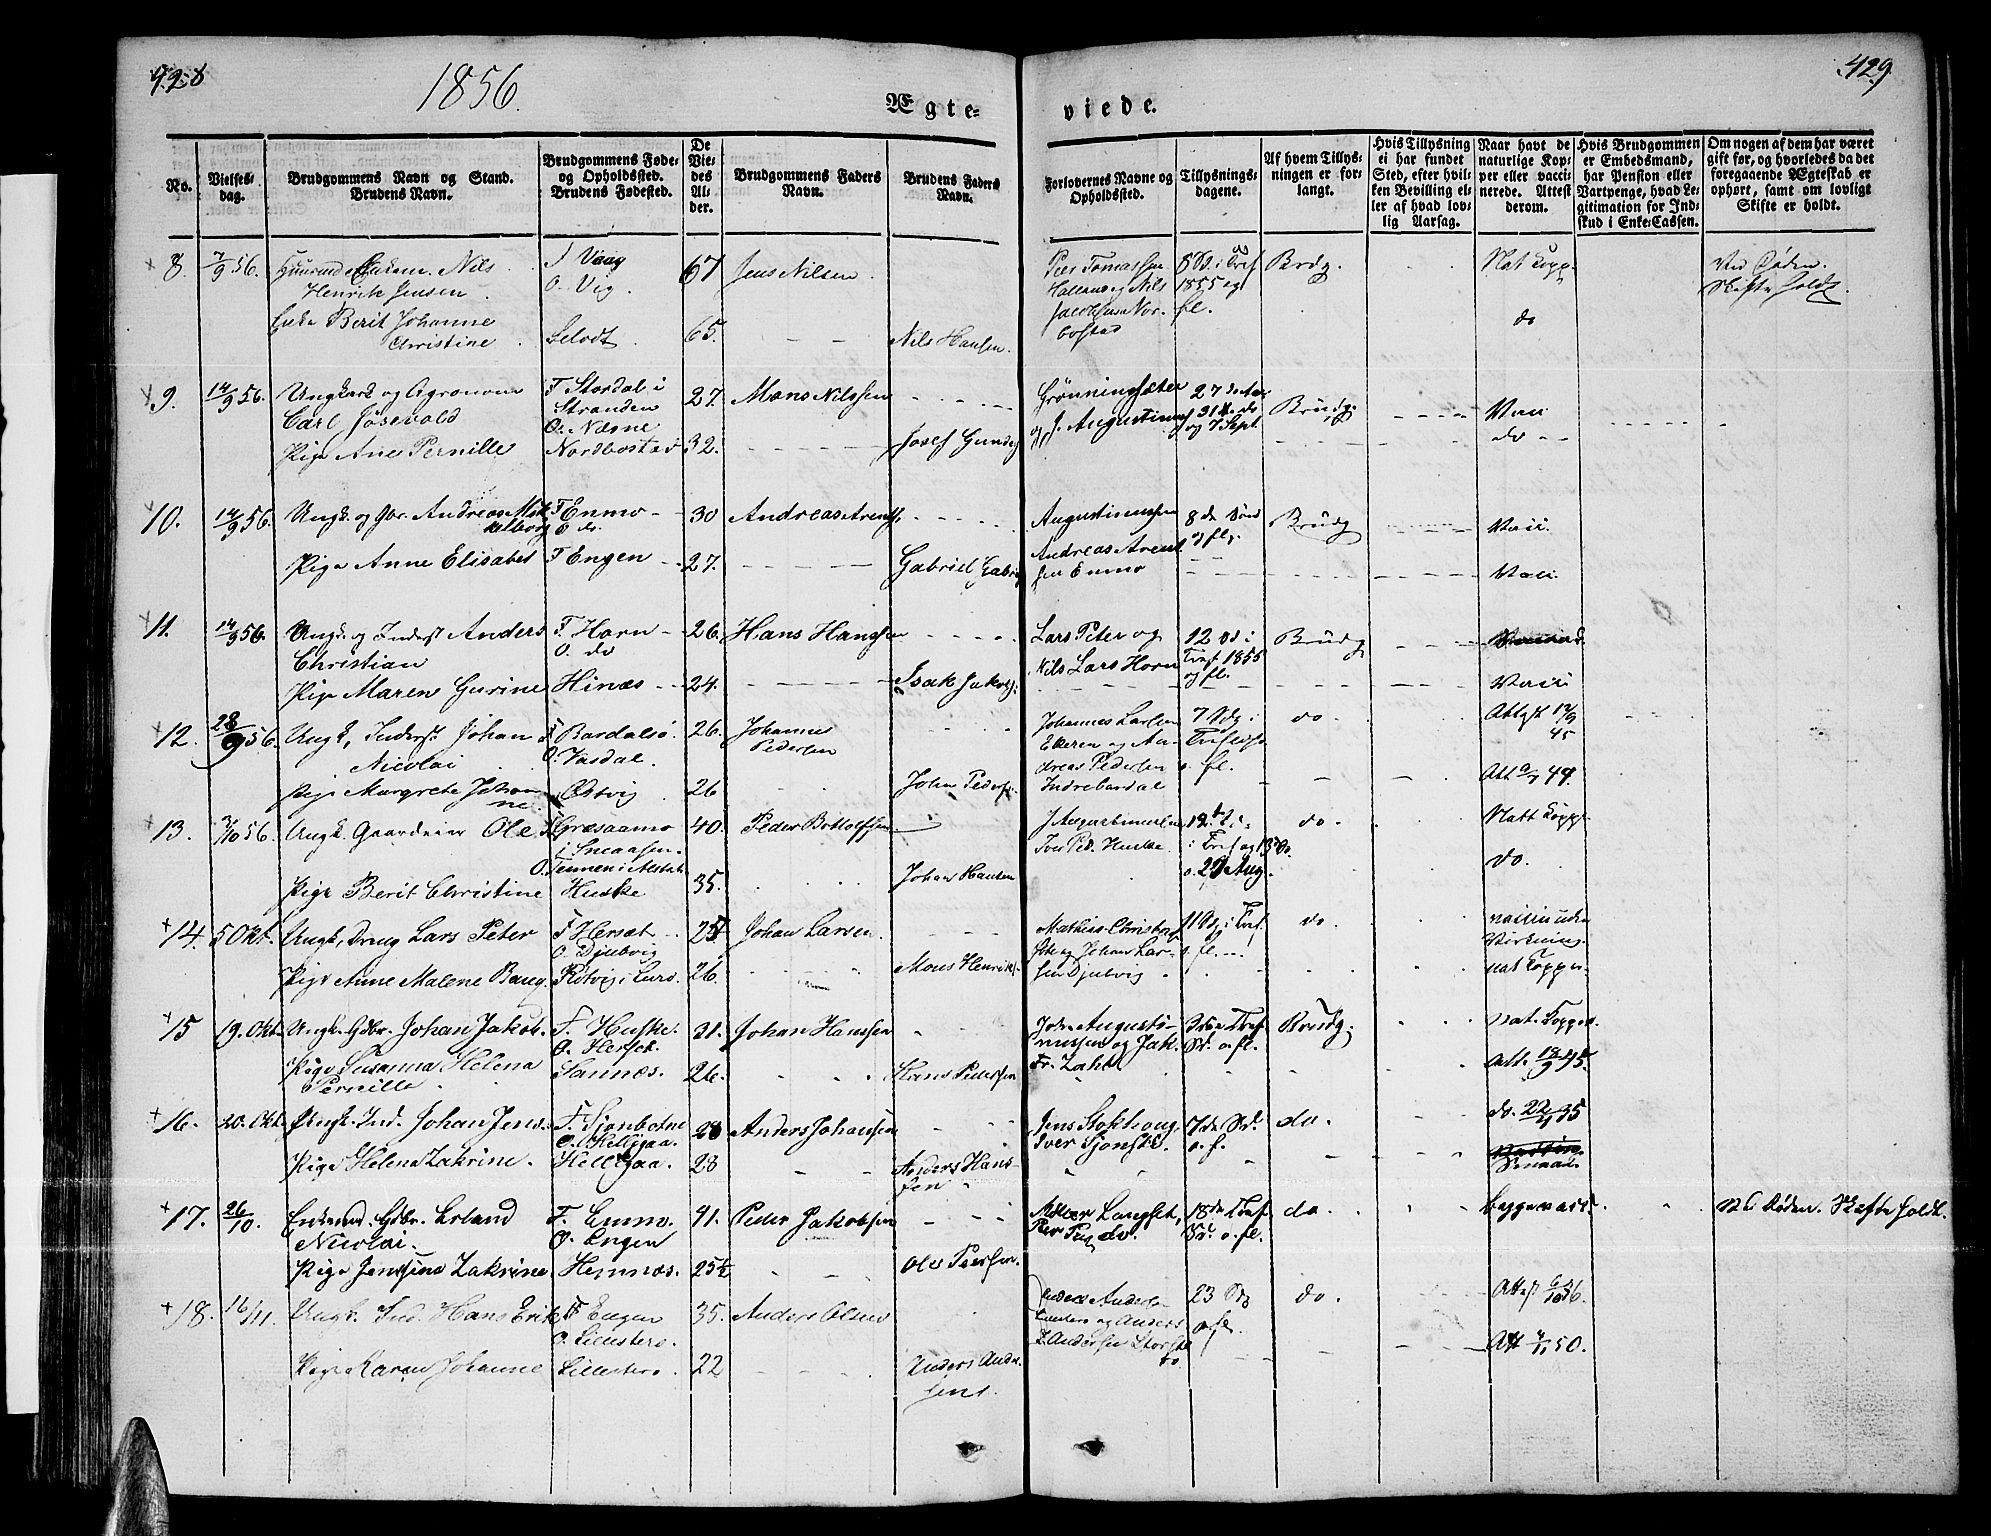 428
1856.
Ægte-
viede.
429
No.
Vielses-
dag.
Brudgommens Navn og Stand.
Brudens Navn.
Brudgommens Føde-
og Opholdssted.
Brudens Fødested.
De
Vie-
des
Al-
der.
Brudgommens Faders
Navn.
Brudens Faders
Navn.
Forlovernes Navne og
Opholdssted.
Tillysnings-
dagene.
Af hvem Tillys-
ningen er for-
langt.
Hvis Tillysning
ei har fundet
Sted, efter hvil-
ken Bevilling el-
ler af hvad lov-
lig Aarsag.
Naar havt de
naturlige Kop-
per eller vacci-
nerede. Attest
derom.
Hvis Brudgommen
er Embedsmand,
har Pension eller
Vartpenge, hvad Le-
gitimation for Ind-
skud i Enke-Cassen.
Om nogen af dem har været
gift før, og hvorledes da det
foregaaende Ægteskab er
ophørt, samt om lovligt
Skifte er holdt.
8. 7/9 56. Nils
Henrik Jensen
Vaag
O. Vig.
67 Jens Nilsen
Peer Tomassen
1855 og
fl.
Brdg.
Nat Kopp.
Ved Døden.
Skifte holdt
Enke Berit Johanne
Christine
Selvdt.
65.
Nils Hansen.
do
9. 14/9 56. Ungkarl og Agronom
Carl Josevold
F Stordal i
Stranden
O. Næsne
27. Mons Nilssen
J. Augustinus
og 7 Sept.
Brudg.
Vacc.
Pige Ane Pernille
Nordbostad
32.
Josef Gunde
do
10. 14/9 56. Ungk. og Gbr. Andreas Mik
kelborg
F Enmo
O do.
30 Andreas Arents.
Augustinussen
8de Sønd
og fl.
Brudg
Vacc.
Pige Anne Elisabet
F Engen
27.
Gabriel Gabri
Andreas Arent
sen Enmo
Vacc.
11. 14/9 56. Ungk. og Inderst Anders
Christian
F. Horn
O. do
26. Hans Hanssen
Lars Peter og
Nils Lars Horn
12 Sd i
Tref 1855
og fl.
Brudg
Pige Maren Gurine
Hinæs
24.
Isak Jakobs.
Vacc.
12. 28/9 56. Ungk, Inderst Johan
Nicolai
F Bardalsø
O. Vasdal.
26. Johannes
Pedersen
Johannes Larsen
Ekeren og An-
dreas Pedersen
Indrebardal
7 Sdg i
o. fl.
do.
Attest 12/9
45
Pige Margrete Johan
ne.
Østvig
26
John Peders.
Att 44.
13. /10 56. Ungk. Gaardeier Ole
F. Græsaamo
i Sneaasen.
O. Tennen i Alstah
40. Peder Bottolfsen
J Augustinussen
Iver Ped. Huske.
i Tref og 13 So.
o. 29 Aug.
do.
Natt Kopp.
Pige Berit Christine
Huske
35.
Johan Hansen
do.
14. 5 Okt. Ungk, Lars Peter
F Hersæt
O. Djubvig
25 Johan Larsen
Mathias Christof
sen og Johan Lar-
sen Djubvig
11 Sdg i Tref.
o fl.
do
vaccin uden
Virkning.
Pige Anne Malene Baug.
Røtvig i Lurø.
26.
Mons Henrik
nat Kopper
15 19. Okt. Ungk. Gdbr. Johan Jakob.
F. Huske.
O. Hersæt.
31. Johan Hanssen
John Augusti-
nussen og Jak.
Fr. Zahl
3die Tref.
Sr. o. fl.
Brudg.
nat. Kopper.
Pige Susanna Helena
Pernille
Sannæs.
26.
Hans Pedersen
Att. 18/9 45.
16. 20. Okt. Ungk. Ind. Johan Jens.
F. Sjonbotne
O. Helligaa.
28 Anders Johansen
Jens Stokke og
Iver Sjonste.
17de Sr.
o. f.
do.
do. 22/4 35
Pige Helena Zakrine.
Helligaa.
28
Anders Hans-
sen
17. 26/10. Enkemd. Gdbr. Erland
Nicolai.
F. Enmo.
O. Engen
41. Peder Jakobsen
Langset,
do.
18de Tref.
Sr. o. fl.
do.
begge vacc.
Døden. Skifte holdt.
Pige Jenssine Zakrine.
Hemnæs.
25½
Ole Peersen.
18. 16/11. Ungk. Ind. Hans Erik
F Engen
O. Lillestero.
35. Anders Olsen
Anders Anders
og Anders
Z. Andersen Storste
ro
23 Sdg
o fl.
do.
Attest 6/10 36.
Pige Karen Johanne
Lillestero.
22
Anders Ander
sens.
Att 50.